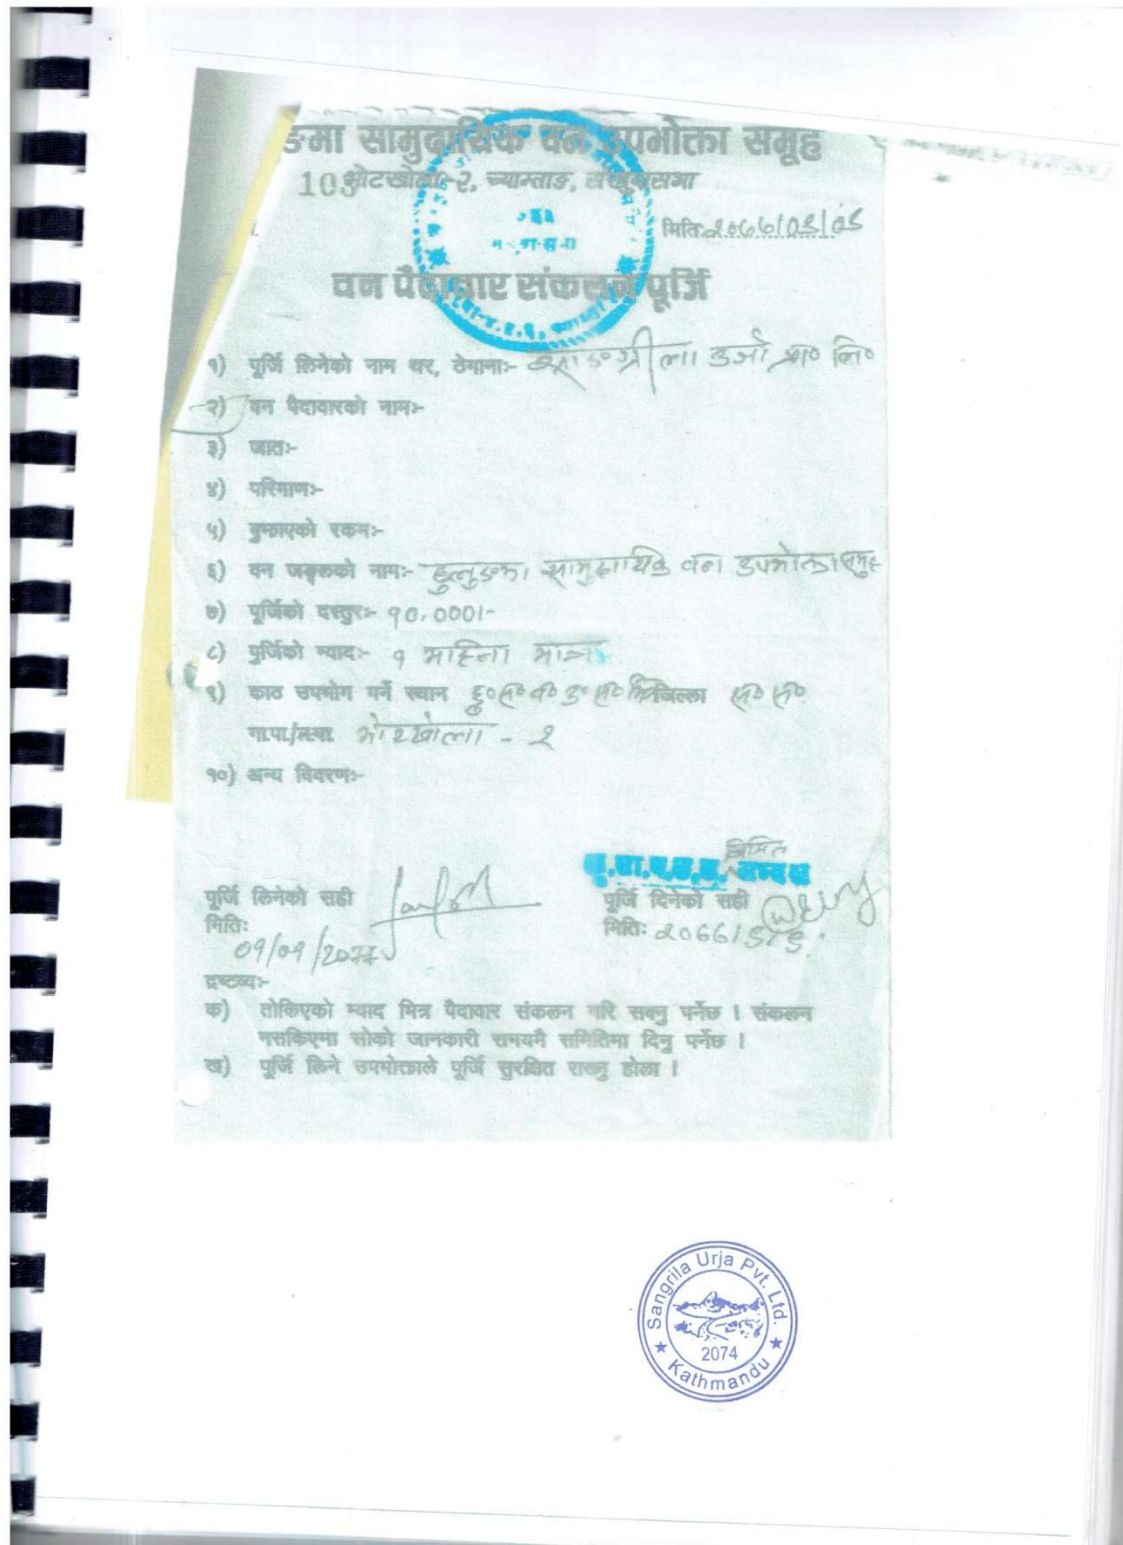 ङमा सामुदायिक वन उपभोक्ता समूह
103
भोटखोला-२, च्याम्ताङ, संखुवासभा
मितिः
वन पैदावार संकलन पूर्जि
१) पूर्जि लिनेको नाम थर, ठेगानाः- साङग्रीला उर्जा प्रा० लि०
२) वन पैदावारको नामः-
३) जातः-
४) परिमाणः-
५) बुझाएको रकमः-
६) वन जङ्गलको नामः- सामुदायिक वन उपभोक्ता समुह
७) पूर्जिको दस्तुरः- १०,०००।-
८) पुर्जिको म्यादः- १ महिना मात्र
९) काठ उपभोग गर्ने स्थान जिल्ला स० स०
गा.पा./न.पा. भोटखोला - २
१०) अन्य विवरणः-
निमित्त
अध्यक्ष
पूर्जि लिनेको सही
पूर्जि दिनेको सही
मितिः
मितिः
09/09/2077
द्रष्टव्यः-
क) तोकिएको म्याद भित्र पैदावार संकलन गरि सक्नु पर्नेछ । संकलन
नसकिएमा सोको जानकारी समयमै समितिमा दिनु पर्नेछ ।
ख) पूर्जि लिने उपभोक्ताले पूर्जि सुरक्षित राख्नु होला ।
Sangrila Urja Pvt. Ltd.
2074
Kathmandu